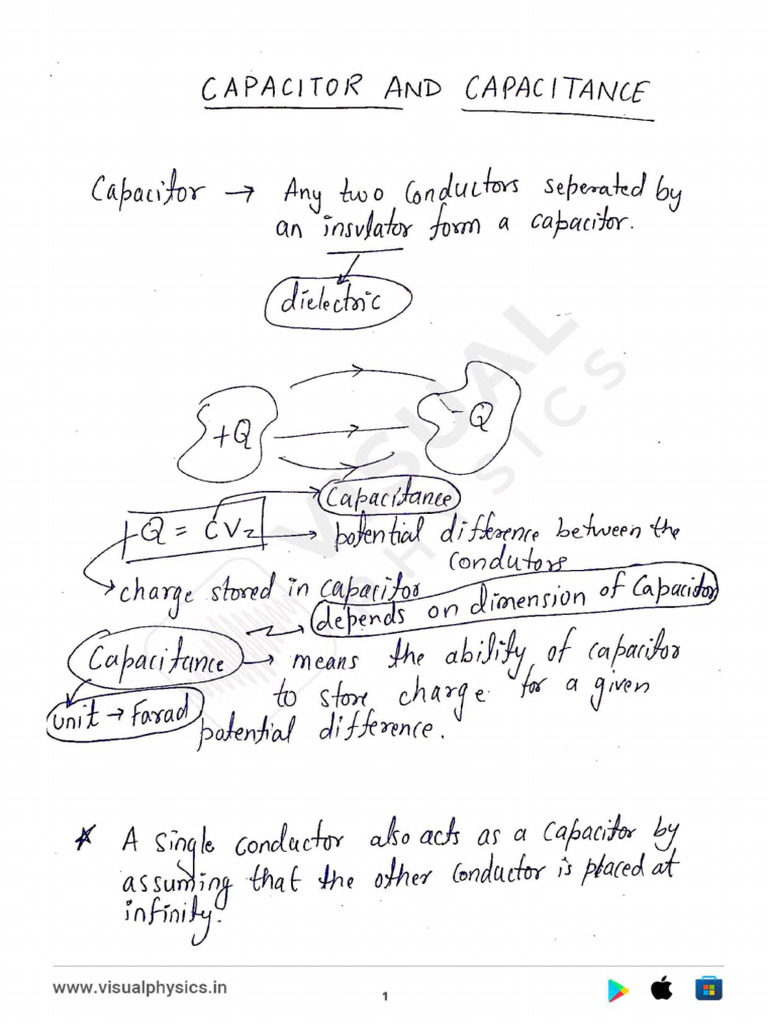 CAPACITOR AND CAPACITANCE
Capacitor → Any two conductors seperated by
an insulator form a capacitor.
dielectric
+Q
-Q
Capacitance
Q = CV → potential difference between the
condutors
charge stored in capacitor
depends on dimension of Capacitor
Capacitance → means the ability of capacitor
to store charge for a given
unit → Farad
potential difference.
* A single conductor also acts as a capacitor by
assuming that the other conductor is placed at
infinity.
VISUAL
PHYSICS
www.visualphysics.in
1